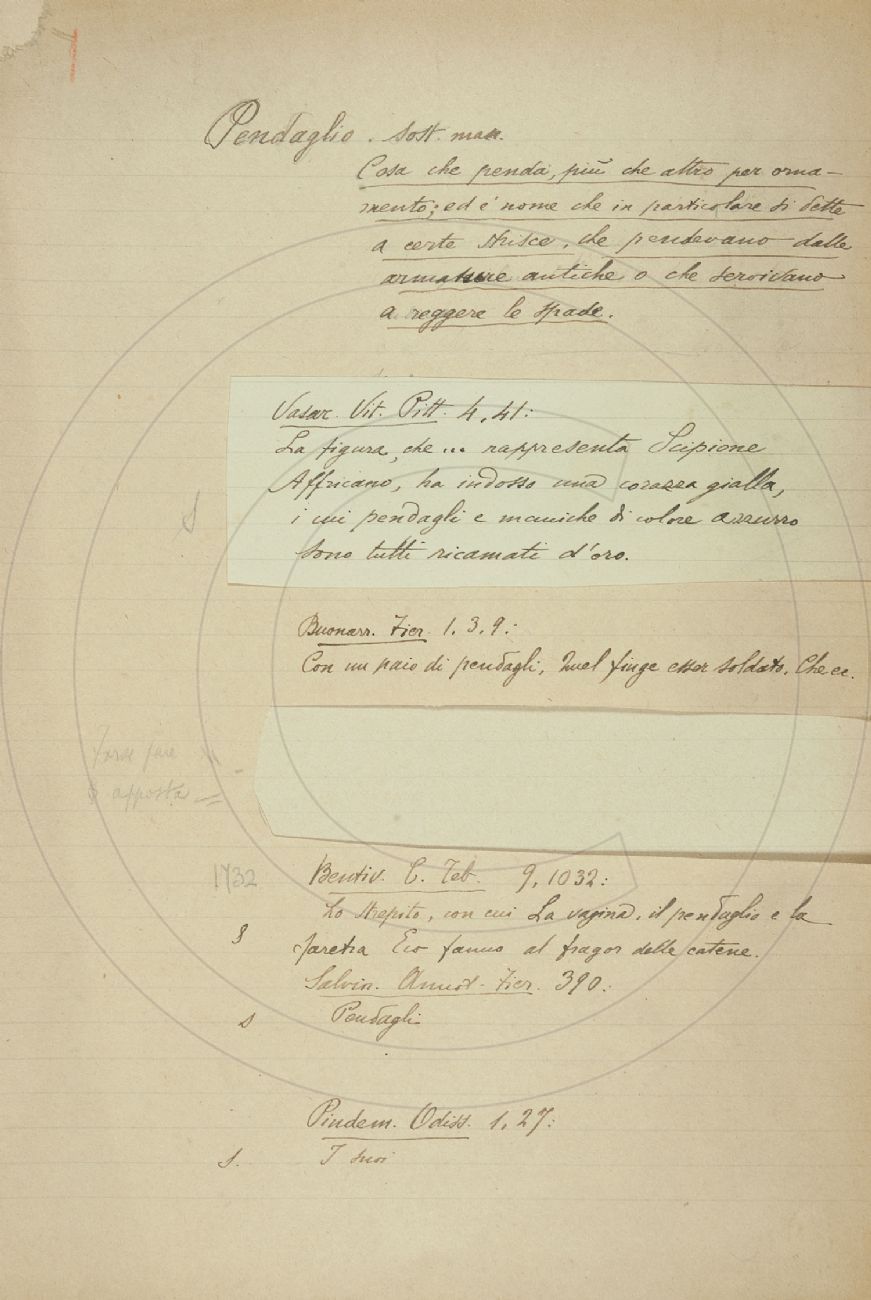 Pendaglio. Sost. masc.
Cosa che penda, più che altro per orna-
mento; ed è nome che in particolare si dette
a certe strisce, che pendevano dalle
armature antiche o che servivano
a reggere le spade.
Vasar. Vit. Pitt. 4, 41:
La figura, che ... rappresenta Scipione
Affricano, ha indosso una corazza gialla,
i cui pendagli e maniche di colore azzurro
sono tutti ricamati d'oro.
Buonarr. Fier. 1. 3. 9:
Con un paio di pendagli, Quel finge esser soldato. Che ec.
Forse fare
apposta
1732
Bentiv. C. Teb. 9, 1032:
Lo strepito, con cui La vagina, il pendaglio e la
faretra Eco fanno al fragor delle catene.
Salvin. Annot. Fier. 390:
Pendagli
Pindem. Odiss. 1. 27:
I suoi